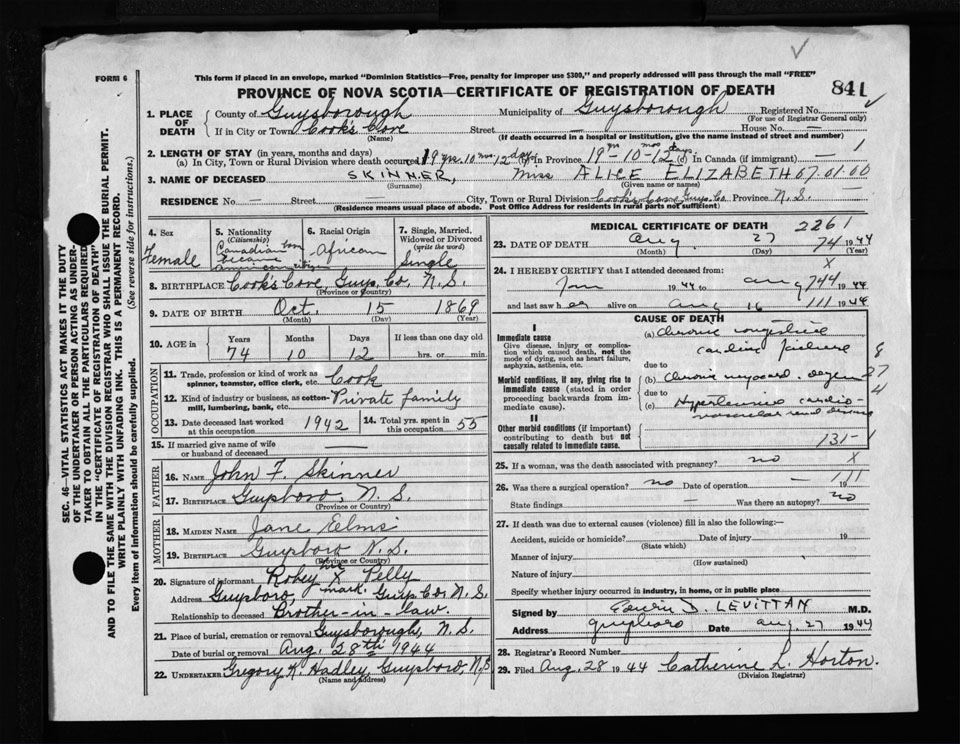 FORM 6
This form if placed in an envelope, marked "Dominion Statistics—Free, penalty for improper use $300," and properly addressed will pass through the mail "FREE"
PROVINCE OF NOVA SCOTIA—CERTIFICATE OF REGISTRATION OF DEATH
841
1. PLACE OF DEATH County of Guysborough Municipality of Guysborough Registered No.
(For use of Registrar General only)
If in City or Town Cook's Cove Street — House No. —
(Name) (If death occurred in a hospital or institution, give the name instead of street and number)
2. LENGTH OF STAY (in years, months and days)
(a) In City, Town or Rural Division where death occurred 19 yrs. 10 mos 12 days (b) In Province 19 - 10 mos - 12 days (c) In Canada (if immigrant) — 1
3. NAME OF DECEASED SKINNER, Miss ALICE ELIZABETH 67.01.00
(Surname) (Given name or names)
RESIDENCE No. — Street — City, Town or Rural Division Cook's Cove Guys. Co. Province N.S.
(Residence means usual place of abode. Post Office Address for residents in rural parts not sufficient)
4. Sex
Female
5. Nationality
(Citizenship)
Canadian born
became
American citizen
6. Racial Origin
African
7. Single, Married, Widowed or Divorced
(write the word)
Single
8. BIRTHPLACE Cook's Cove, Guys. Co. N.S.
(Province or Country)
9. DATE OF BIRTH Oct. 15 1869
(Month) (Day) (Year)
10. AGE in Years Months Days If less than one day old
74 10 12 hrs. or min.
OCCUPATION
11. Trade, profession or kind of work as spinner, teamster, office clerk, etc. Cook
12. Kind of industry or business, as cotton-mill, lumbering, bank, etc. Private family
13. Date deceased last worked at this occupation 1942
14. Total yrs. spent in this occupation 55
15. If married give name of wife or husband of deceased —
FATHER
16. NAME John F. Skinner
17. BIRTHPLACE Guysboro, N.S.
(Province or Country)
MOTHER
18. MAIDEN NAME Jane Elms
19. BIRTHPLACE Guysboro N.S.
(Province or Country)
20. Signature of informant Robey his X mark Pelly
Address Guysboro Guys Co. N.S.
Relationship to deceased Brother-in-law.
21. Place of burial, cremation or removal Guysborough, N.S.
Date of burial or removal Aug. 28th 1944
22. UNDERTAKER Gregory K. Hadley, Guysboro, N.S.
(Name and address)
MEDICAL CERTIFICATE OF DEATH 2261
23. DATE OF DEATH Aug 27 74 1944
(Month) (Day) (Year)
X
24. I HEREBY CERTIFY that I attended deceased from:
Jan 1944 to Aug 9 744 1944
and last saw her alive on Aug 16 111 1944
CAUSE OF DEATH
I
Immediate cause
Give disease, injury or complication which caused death, not the mode of dying, such as heart failure, asphyxia, asthenia, etc.
(a) Chronic congestive
cardiac failure
due to
Morbid conditions, if any, giving rise to immediate cause (stated in order proceeding backwards from immediate cause).
(b) Chronic myocard. degen
due to
(c) Hypertensive cardio-
vascular renal disease
8
27
4
II
Other morbid conditions (if important) contributing to death but not causally related to immediate cause.
131-1
25. If a woman, was the death associated with pregnancy? no X
26. Was there a surgical operation? no Date of operation — 19 111
State findings — Was there an autopsy? no
27. If death was due to external causes (violence) fill in also the following:—
Accident, suicide or homicide? Date of injury 19
(State which)
Manner of injury
(How sustained)
Nature of injury
Specify whether injury occurred in industry, in home, or in public place
Signed by Edwin D. LEVITTAN M.D.
Address Guysboro Date Aug. 27 1944
28. Registrar's Record Number
29. Filed Aug. 28 1944 Catherine L. Horton.
(Division Registrar)
SEC. 46—VITAL STATISTICS ACT MAKES IT THE DUTY
OF THE UNDERTAKER OR PERSON ACTING AS UNDER-
TAKER TO OBTAIN ALL THE PARTICULARS REQUIRED
IN THE "CERTIFICATE OF REGISTRATION OF DEATH"
AND TO FILE THE SAME WITH THE DIVISION REGISTRAR WHO SHALL ISSUE THE BURIAL PERMIT.
WRITE PLAINLY WITH UNFADING INK. THIS IS A PERMANENT RECORD.
Every item of information should be carefully supplied. (See reverse side for instructions.)